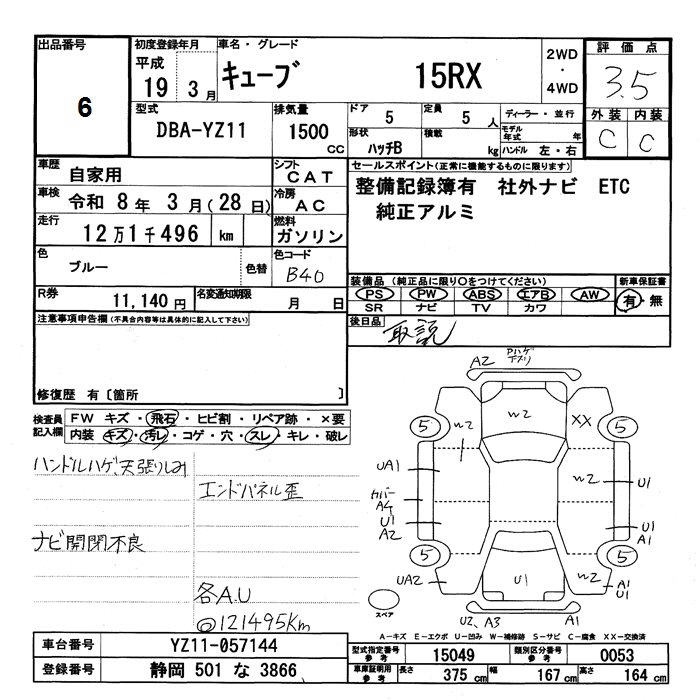 出品番号 6
初度登録年月 平成 19年 3月
車名・グレード キューブ 15RX
2WD・4WD
評価点 3.5
外装 C 内装 C
型式 DBA-YZ11
排気量 1500 CC
ドア 5
定員 5人
形状 ハッチB
積載 kg
ディーラー・並行
モデル年式 年
ハンドル 左・右
車歴 自家用
シフト CAT
車検 令和 8年 3月(28日)
冷房 AC
走行 12万1千496 km
燃料 ガソリン
色 ブルー 色替
色コード B40
R券 11,140円
名変通知期限 月 日
セールスポイント(正常に機能するものに限ります)
整備記録簿有 社外ナビ ETC
純正アルミ
装備品 (純正品に限り○をつけてください)
PS PW ABS エアB AW
SR ナビ TV カワ
新車保証書 有・無
後日品 取説
注意事項申告欄(不具合内容等は具体的に記入して下さい)
修復歴 有〔箇所 〕
検査員記入欄
FW キズ・飛石・ヒビ割・リペア跡・×要
内装 キズ・汚レ・コゲ・穴・スレ・キレ・破レ
ハンドルハゲ、天張りしみ
エンドパネル歪
ナビ開閉不良
各A.U
@121495Km
A2
W2
W2
XX
5
5
UA1
W2
U1
カバー
A4
U1
A2
U1
A1
5
5
UA2
U1
W2
A1
U1
スペア
U2、A3
A1
A-キズ E-エクボ U-凹み W-補修跡 S-サビ C-腐食 XX-交換済
車台番号 YZ11-057144
登録番号 静岡 501 な 3866
型式指定番号 参考 15049
類別区分番号 参考 0053
車庫証明用 参考 長さ 375 cm 幅 167 cm 高さ 164 cm